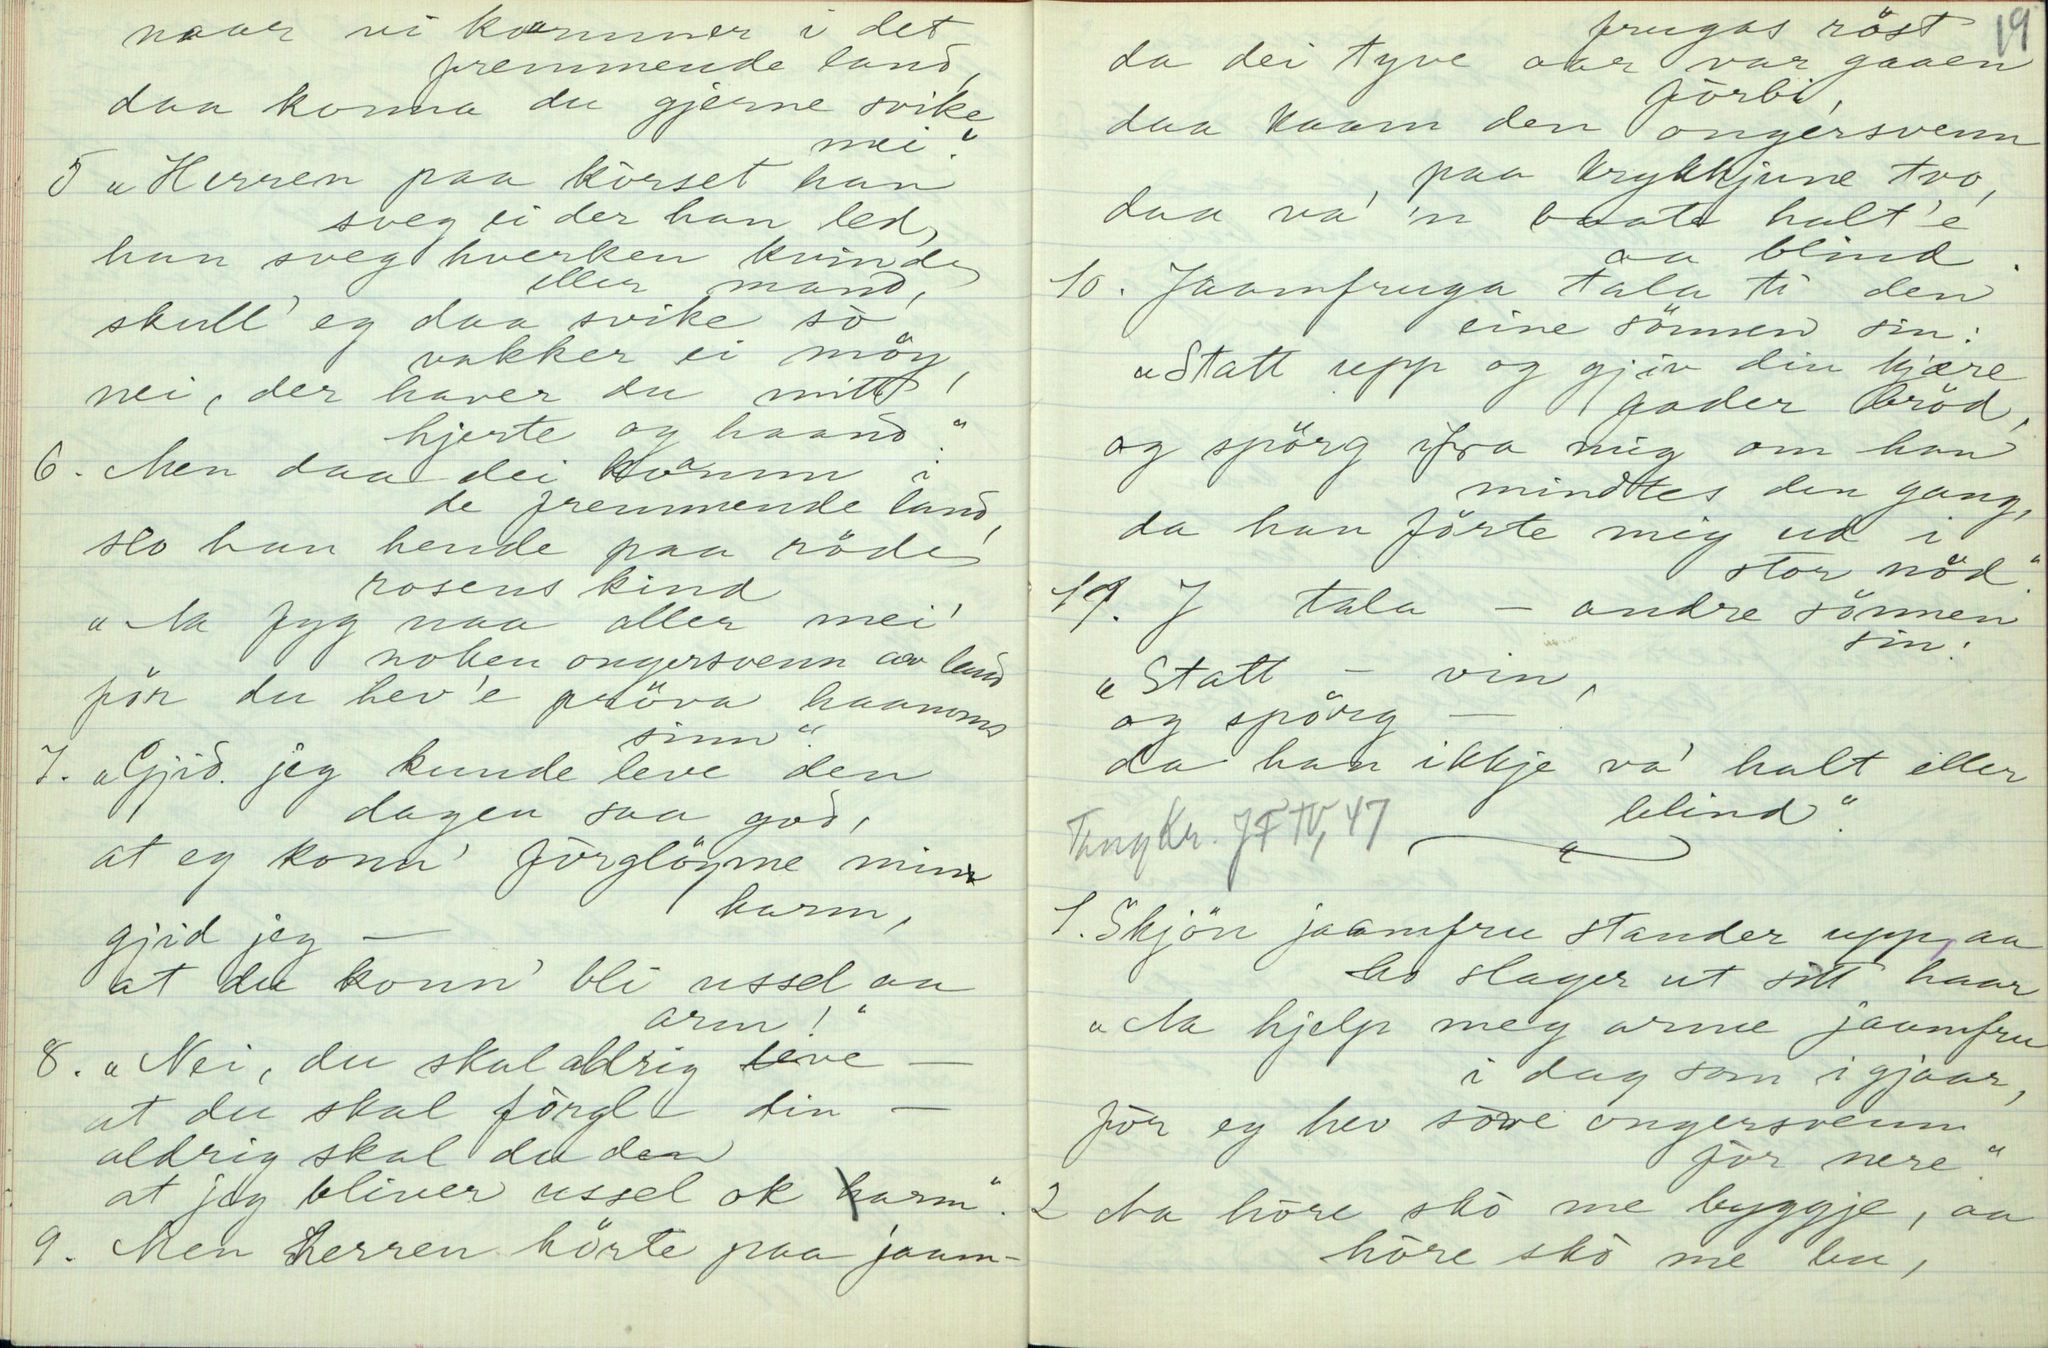 naar vi kommer i det
fremmende land,
daa konna du gjerne svike
mei."
5 „Herren paa körset han
sveg ei der han led,
han sveg hverken kvinde
eller mand,
skull' eg daa svike sò
vakker ei möy,
nei, der haver du mitt
hjerte og haand."
6. Men daa dei komm i
de fremmende land,
slo han hende paa röde
rosens kind
„Aa fyg naa aller mei
noken ongersvenn av land
før du hev'e pröva haanoms
sinn".
7. „Gjid jeg kunde leve den
dagen saa god,
at eg konn' förglöyme min
harm,
gjid jeg —
at du konn' bli ussel aa
arm!"
8. „Nei, du skal aldrig leve —
at du skal förgl – din —
aldrig skal du den
at jeg bliver ussel ok arm".
9. Men Herren hörte paa jaam-
19
frugas röst
da dei tyve aar var gaaen
förbi,
daa kaam den ongersvenn
paa krykkjune tvo,
daa va' 'n baate halt'e
aa blind.
10. Jaamfruga tala ti den
eine sönnen sin:
„Statt upp og gjiv din kjære
fader bröd,
og spörg ifra mig om han
mindtes den gang,
da han förte mig ud i
stor nöd".
11. J tala – andre sönnen
sin:
„Statt – vin,
og spörg —
da han ikkje va' halt eller
blind".
TangKr. JF IV, 47
1. Skjön jaamfru stander upp, aa
ho slager ut sitt haar
„Aa hjelp meg arme jaamfru
i dag som i gjaar,
för eg hev söve ongersvenn
för nere".
2 Aa höre skò me byggje, aa
höre skò me bu,